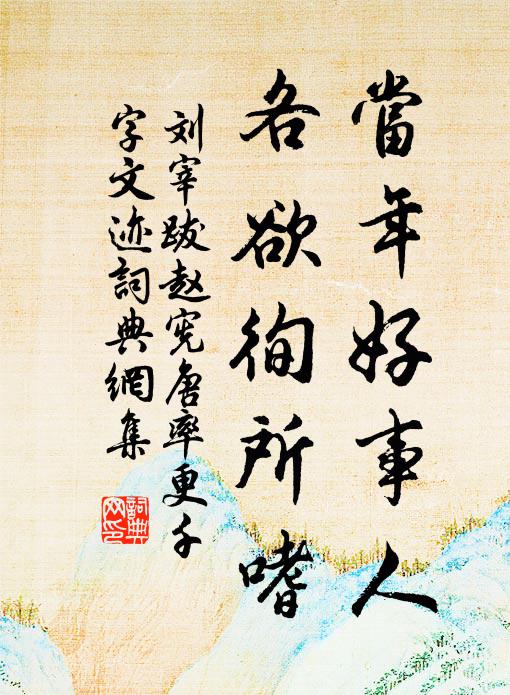 當年好事人
各欲徇所嗜
刘宰跋赵宪唐率更千
字文迹詞典網集
詞典
网印